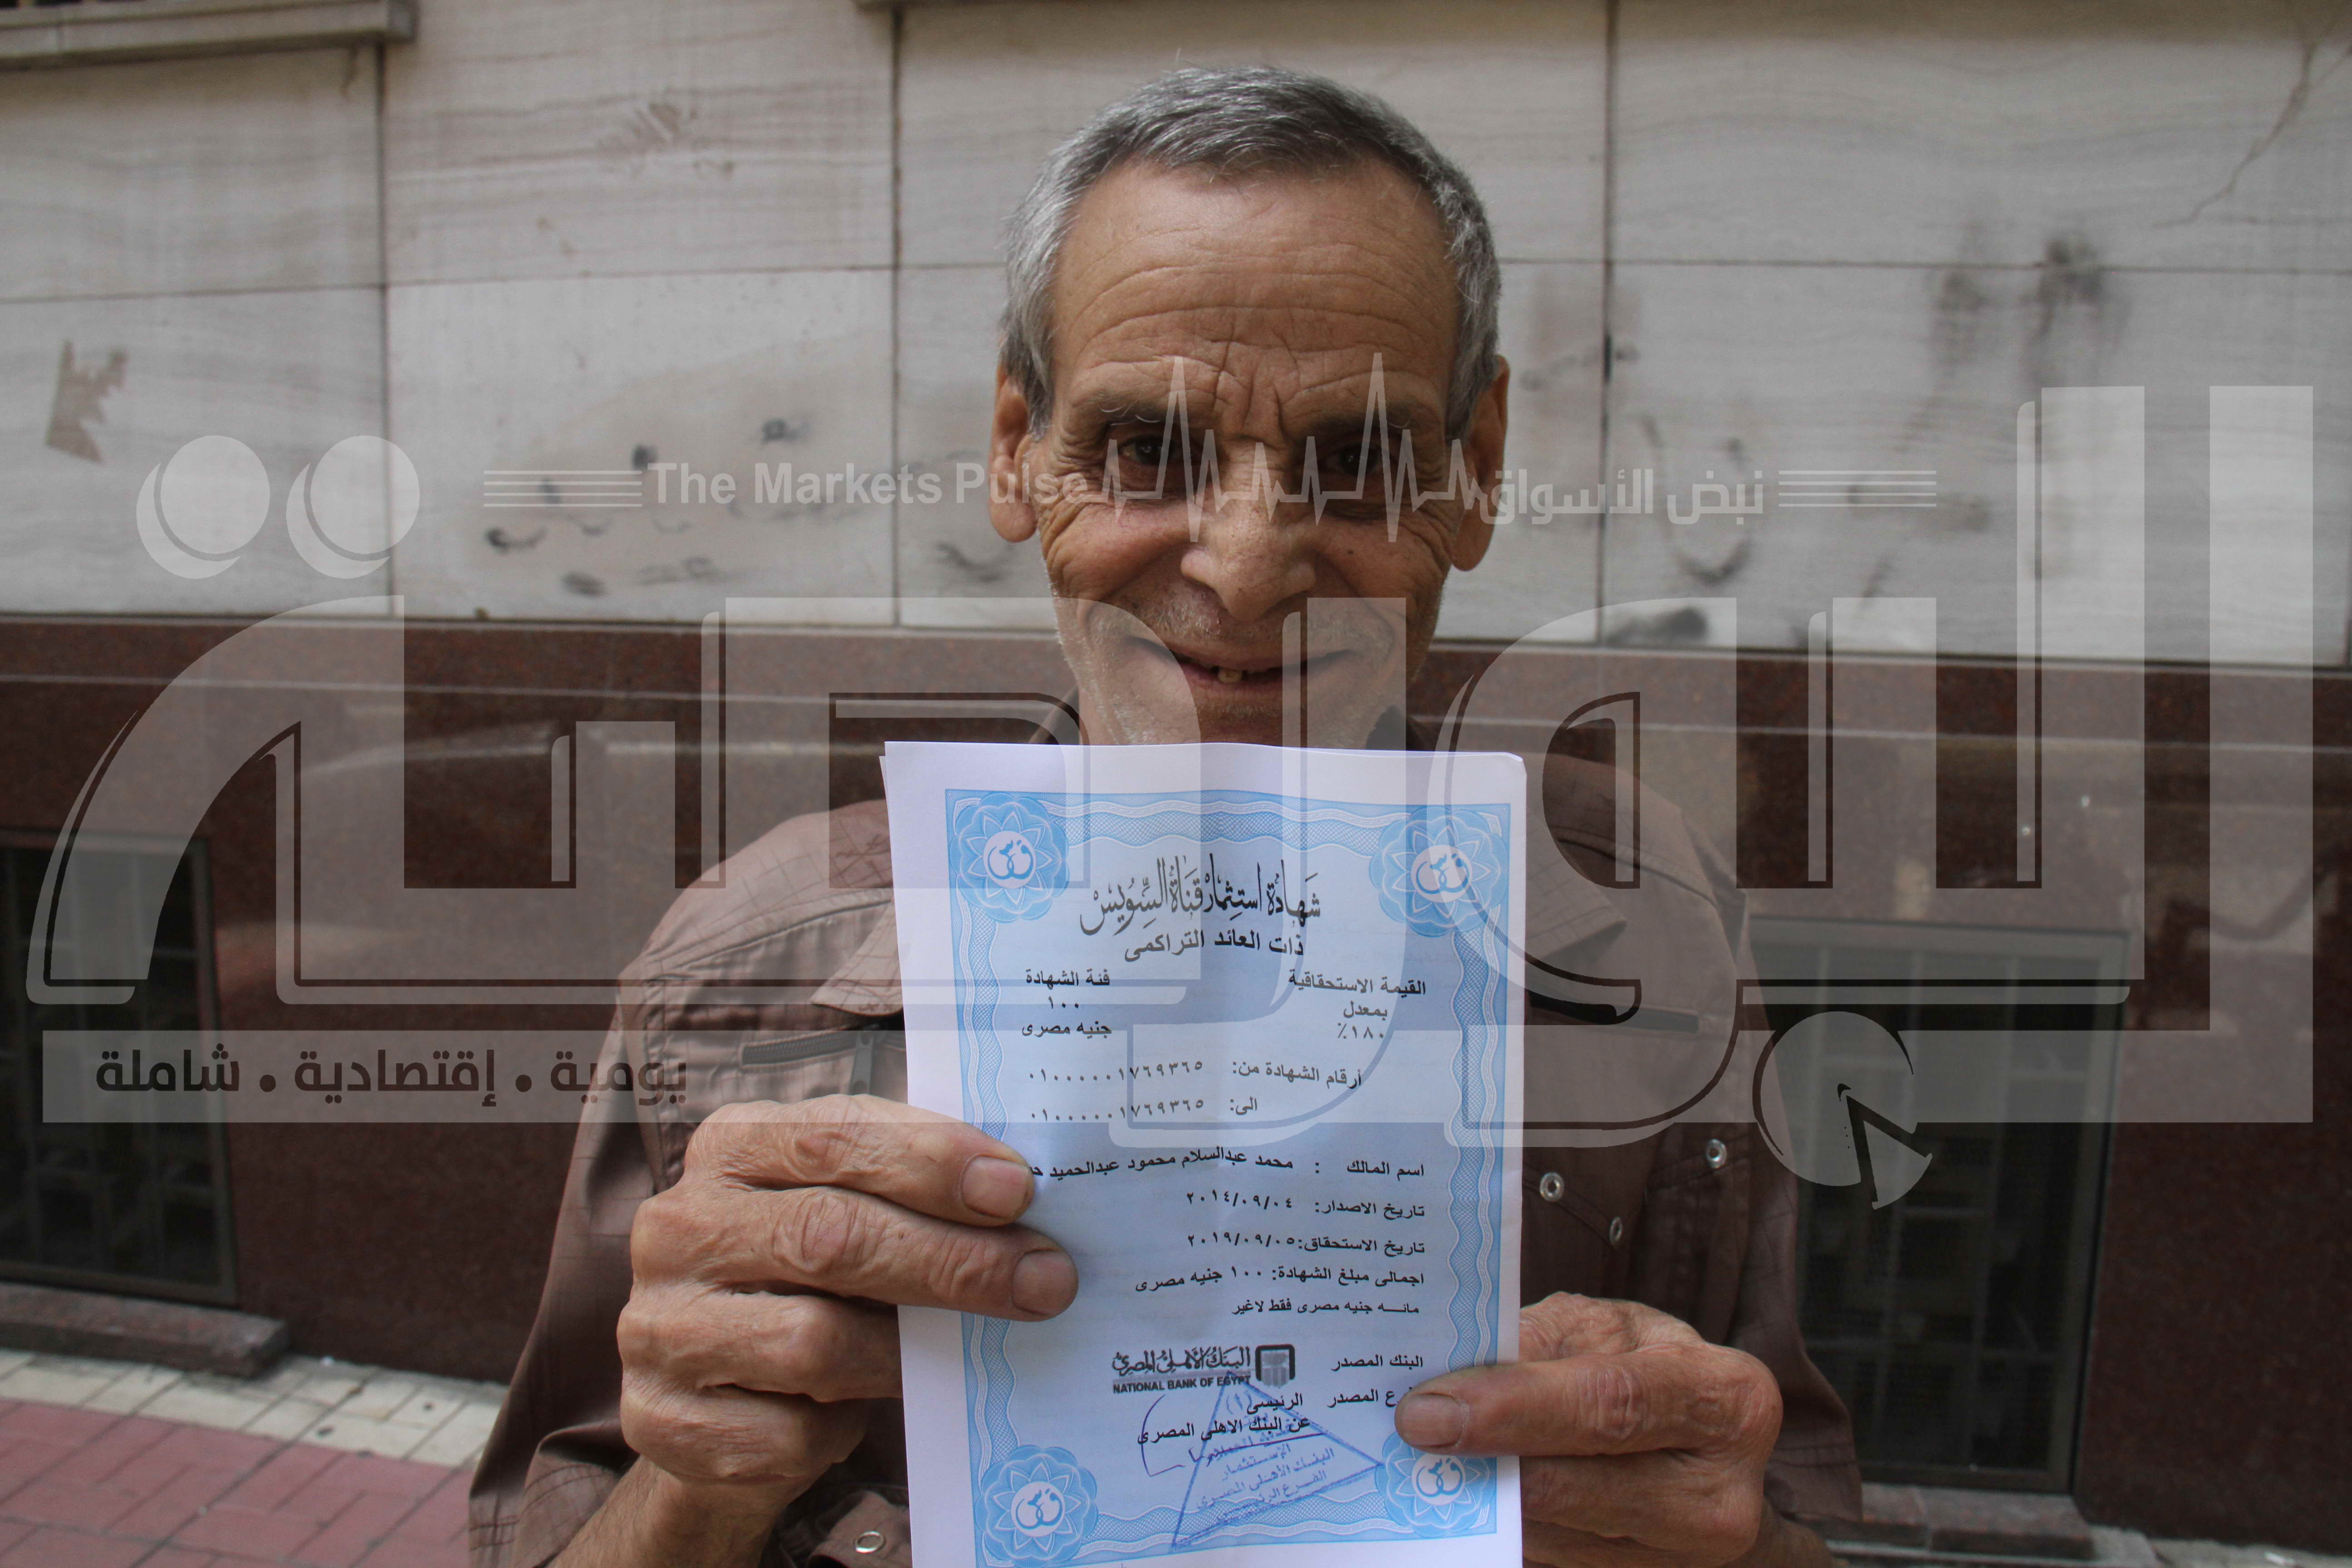 The Markets Pulse نبض الأسواق
البورصة
يومية . إقتصادية . شاملة
شهادة استثمار قناة السويس
ذات العائد التراكمى
القيمة الاستحقاقية فئة الشهادة
بمعدل ١٠٠
١٨٠٪ جنيه مصرى
أرقام الشهادة من: ٠١٠٠٠٠٠٠١٧٦٩٣٦٥
الى: ٠١٠٠٠٠٠٠١٧٦٩٣٦٥
اسم المالك : محمد عبدالسلام محمود عبدالحميد
تاريخ الاصدار: ٢٠١٤/٠٩/٠٤
تاريخ الاستحقاق: ٢٠١٩/٠٩/٠٥
اجمالى مبلغ الشهادة: ١٠٠ جنيه مصرى
مائـــه جنيه مصرى فقط لاغير
البنك المصدر البنك الأهلي المصري
NATIONAL BANK OF EGYPT
المصدر الرئيسى
عن البنك الاهلى المصرى
الإستثمار
البنك الأهلى المصرى